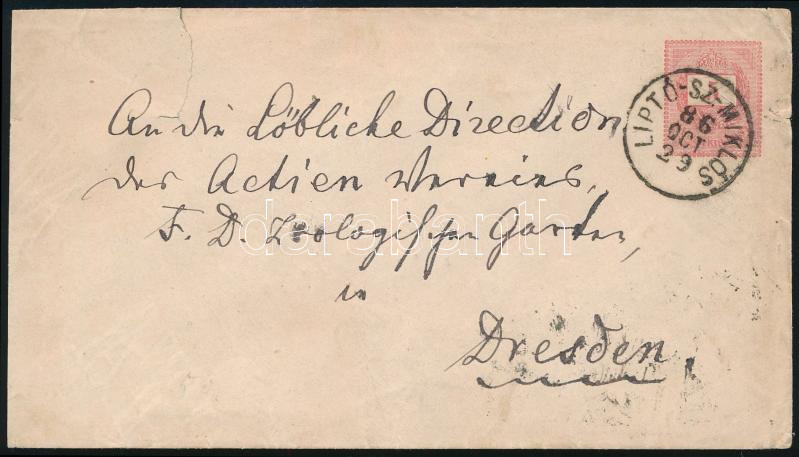 LIPTÓ-SZ-MIKLÓS
86
OCT
29
An die Löbliche Direction
des Actien Vereins,
F. D. Zoologischen Garten,
in
Dresden.
darabanth